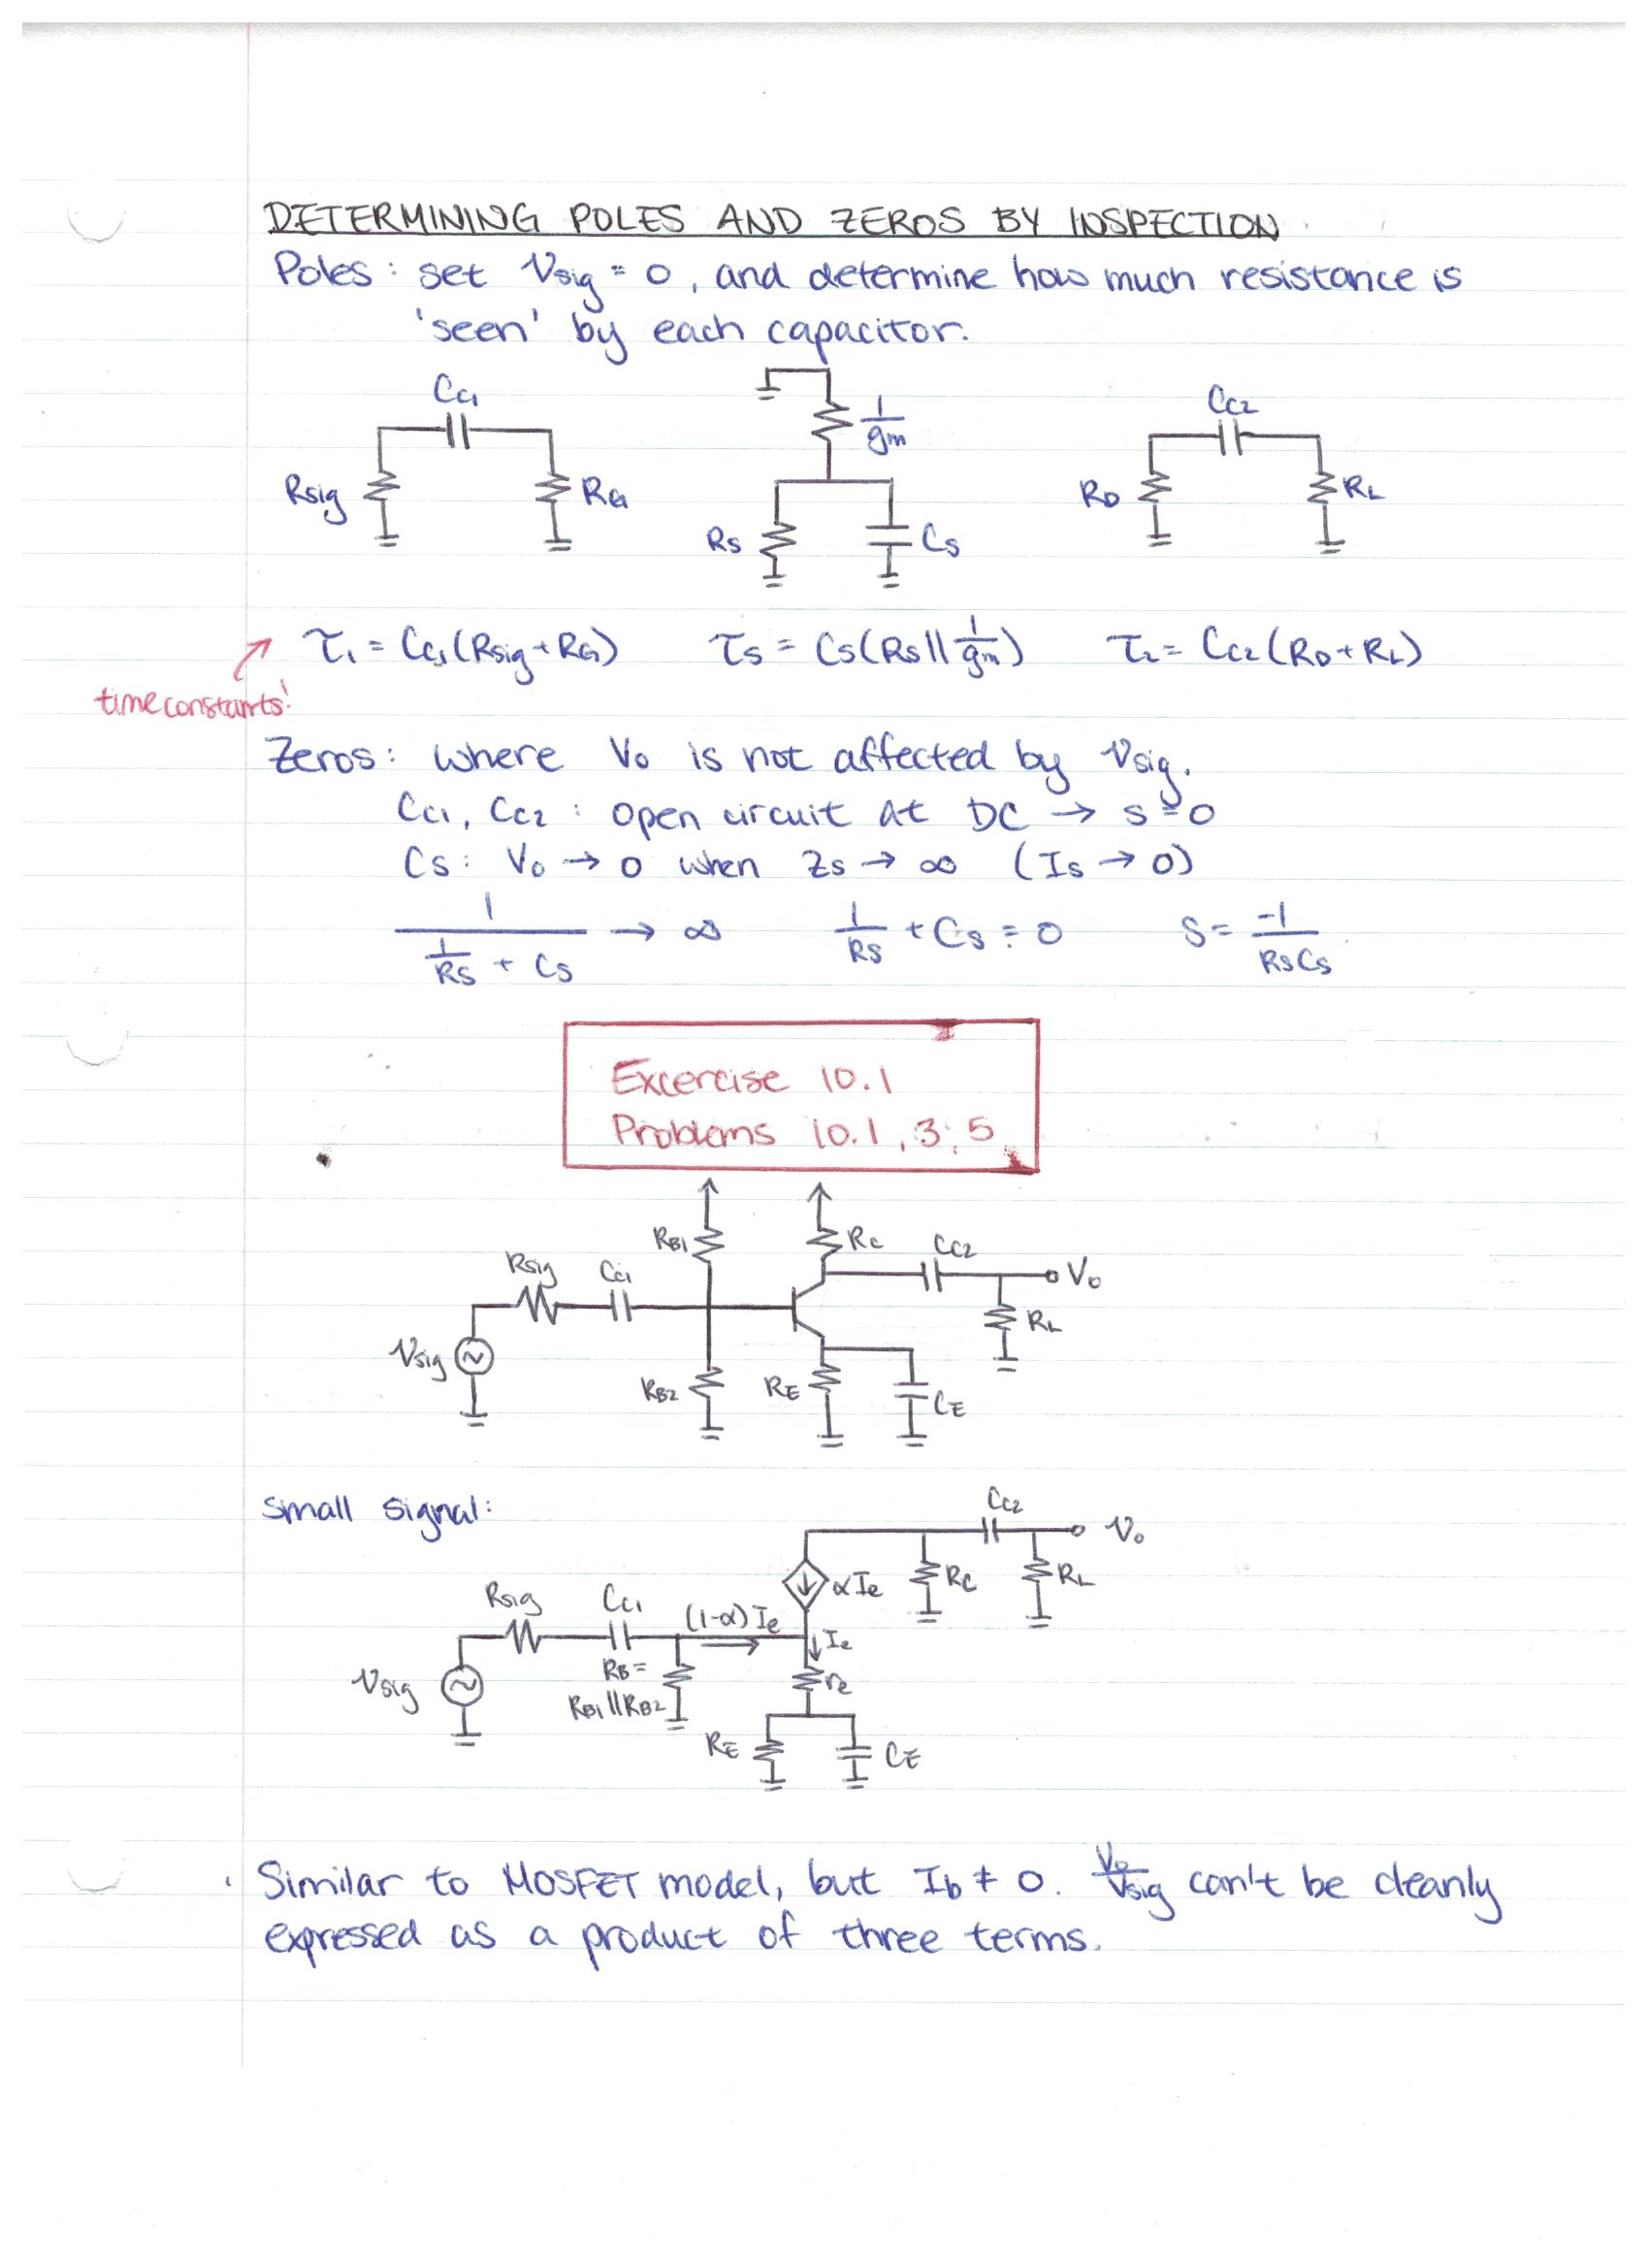 DETERMINING POLES AND ZEROS BY INSPECTION
Poles: set Vsig = 0, and determine how much resistance is
'seen' by each capacitor.
Cc1
Rsig
RG
1/gm
Rs
Cs
Cc2
RD
RL
τ1 = Cc1(Rsig + RG)
τs = Cs(Rs || 1/gm)
τ2 = Cc2(RD + RL)
time constants!
Zeros: where Vo is not affected by Vsig.
Cc1, Cc2: open circuit at DC → s = 0
Cs: Vo → 0 when Zs → ∞ (Is → 0)
1/(1/Rs + Cs) → ∞
1/Rs + Cs = 0
S = -1/RsCs
Excercise 10.1
Problems 10.1, 3, 5
RB1
Rc
Cc2
Vo
Rsig
Cc1
RL
Vsig
RB2
RE
CE
Small signal:
Cc2
Vo
αIe
Rc
RL
Rsig
Cc1
(1-α)Ie
Ie
RB =
RB1 || RB2
re
Vsig
RE
CE
Similar to MOSFET model, but Ib ≠ 0. Vo/Vsig can't be cleanly
expressed as a product of three terms.